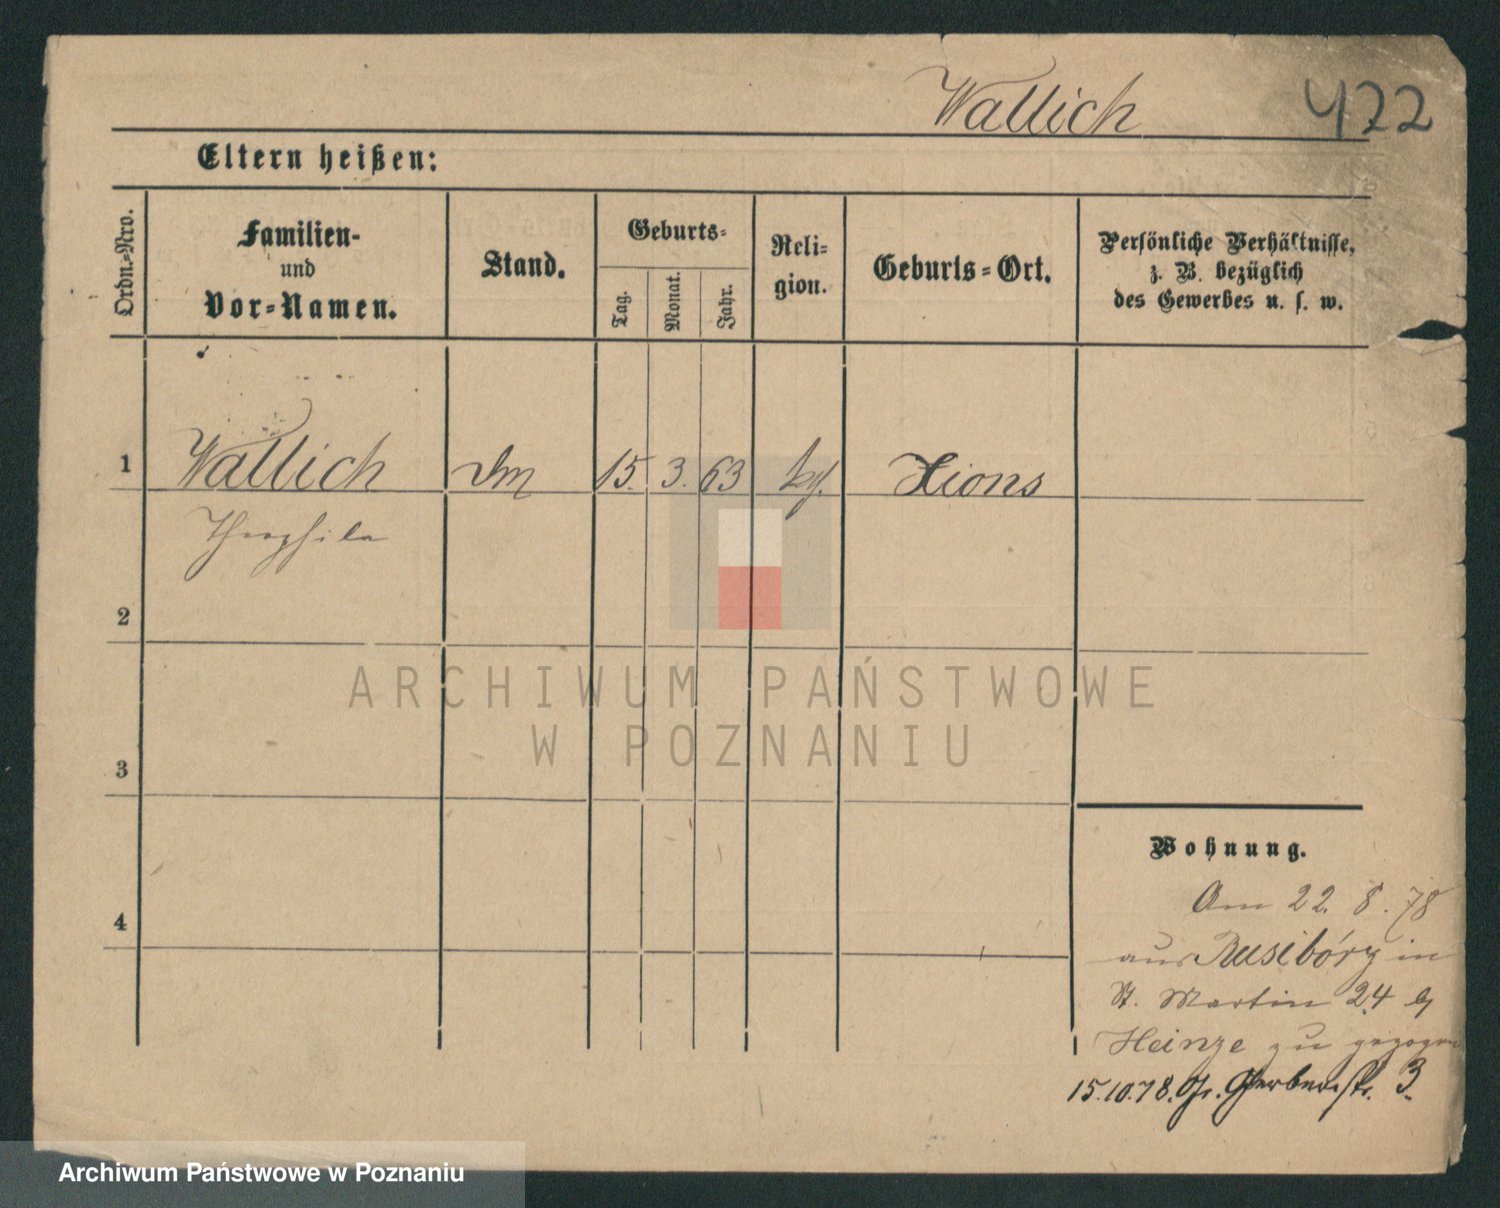 Wallich 422
Eltern heißen:
Ordn.-Nro.
Familien-
und
Vor-Namen.
Stand.
Geburts-
Tag.
Monat.
Jahr.
Reli-
gion.
Geburts-Ort.
Persönliche Verhältnisse,
z. B. bezüglich
des Gewerbes u. s. w.
1 Wallich 15. 3. 63 Xions
Theophila
2
ARCHIWUM PAŃSTWOWE
W POZNANIU
3
Wohnung.
4
Am 22. 8. 78
aus Rusibóry in
St. Martin 24 b
Heinze zu gezogen
15.10.78. Gr. Gerberstr. 3.
Archiwum Państwowe w Poznaniu